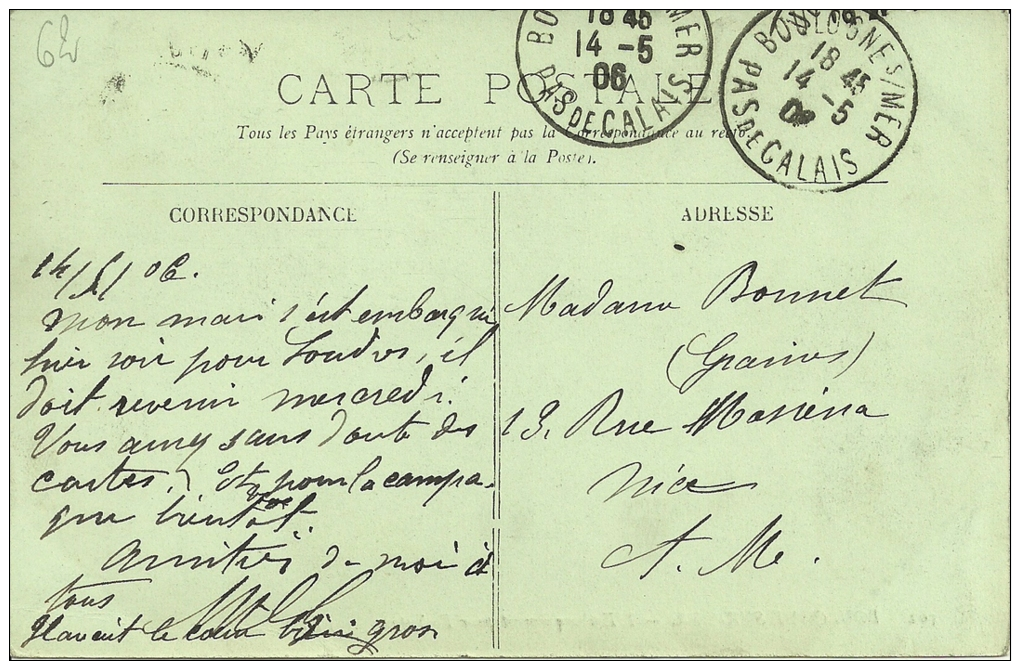 62
BOULOGNE S/MER
18 45
14 -5
06
PAS DE CALAIS
BOULOGNE S/MER
18 45
14 -5
PAS DE CALAIS
CARTE POSTALE
Tous les Pays étrangers n'acceptent pas la Correspondance au recto.
(Se renseigner à la Poste).
CORRESPONDANCE
14/5/06.
Mon mari s'est embarqué
hier soir pour Londres, il
doit revenir mercredi.
Vous aurez sans doute des
cartes. pour la campa-
gne bientôt.
Amitiés de moi à
tous
Il avait le cœur bien gros
ADRESSE
Madame Bonnet
(Graines)
13, Rue Masséna
Nice
A. M.